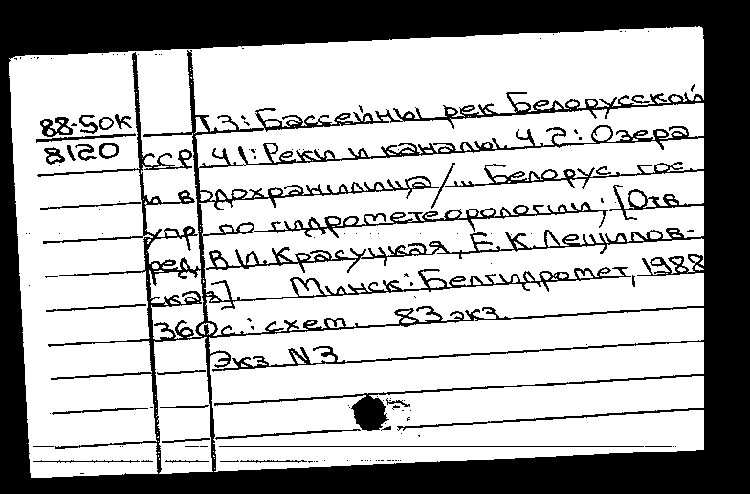 88-50К Т.3: Бассейны рек Белорусской
8120 ССР. Ч.1: Реки и каналы. Ч.2: Озера
и водохранилища/... Белорус. гос.
упр. по гидрометеорологии; [Отв.
ред. В.И. Красуцкая, Е.К. Лещилов-
ская]. Минск: Белгидромет, 1988
360с.: схем. 83 экз.
Экз. N3